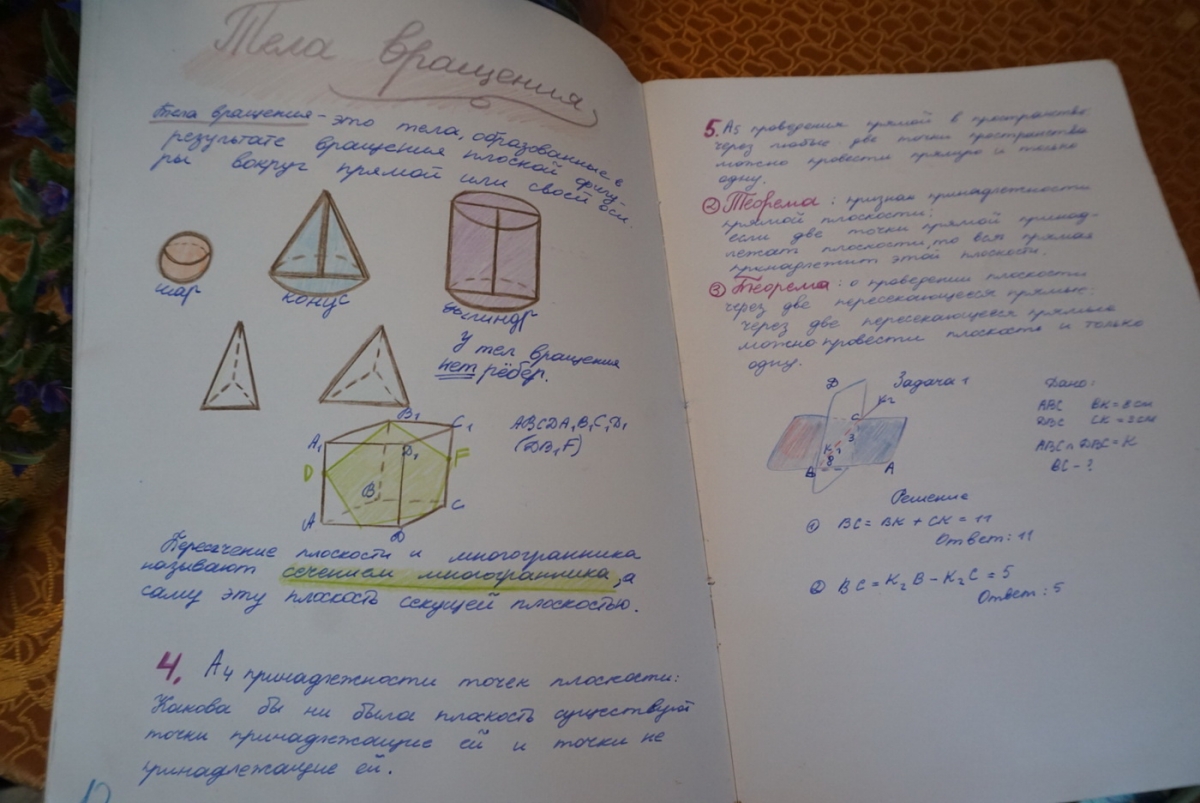 Тела вращения
Тела вращения - это тела, образованные в
результате вращения плоской фигу-
ры вокруг прямой или своей оси.
шар
конус
цилиндр
У тел вращения
нет рёбер.
B₁ C₁
A₁ D₁
D F
B
A C
D
ABCDA₁B₁C₁D₁
(DB₁F)
Пересечение плоскости и многогранника
называют сечением многогранника, а
саму эту плоскость секущей плоскостью.
4. А₄ принадлежности точек плоскости:
Какова бы ни была плоскость существуют
точки принадлежащие ей и точки не
принадлежащие ей.
5. А₅ проведения прямой в пространстве
через любые две точки пространства
можно провести прямую и только
одну.
② Теорема: признак принадлежности
прямой плоскости:
если две точки прямой принад-
лежат плоскости, то вся прямая
принадлежит этой плоскости.
③ Теорема: о проведении плоскости
через две пересекающееся прямые:
через две пересекающееся прямые
можно провести плоскость и только
одну.
Задача 1
D K₂
C
3
K 1
8
B A
Дано:
ABC BK = 8 см
DBC CK = 3 см
ABC ∩ DBC = K
BC - ?
Решение
① BC = BK + CK = 11
Ответ: 11
② BC = K₂B - K₂C = 5
Ответ: 5